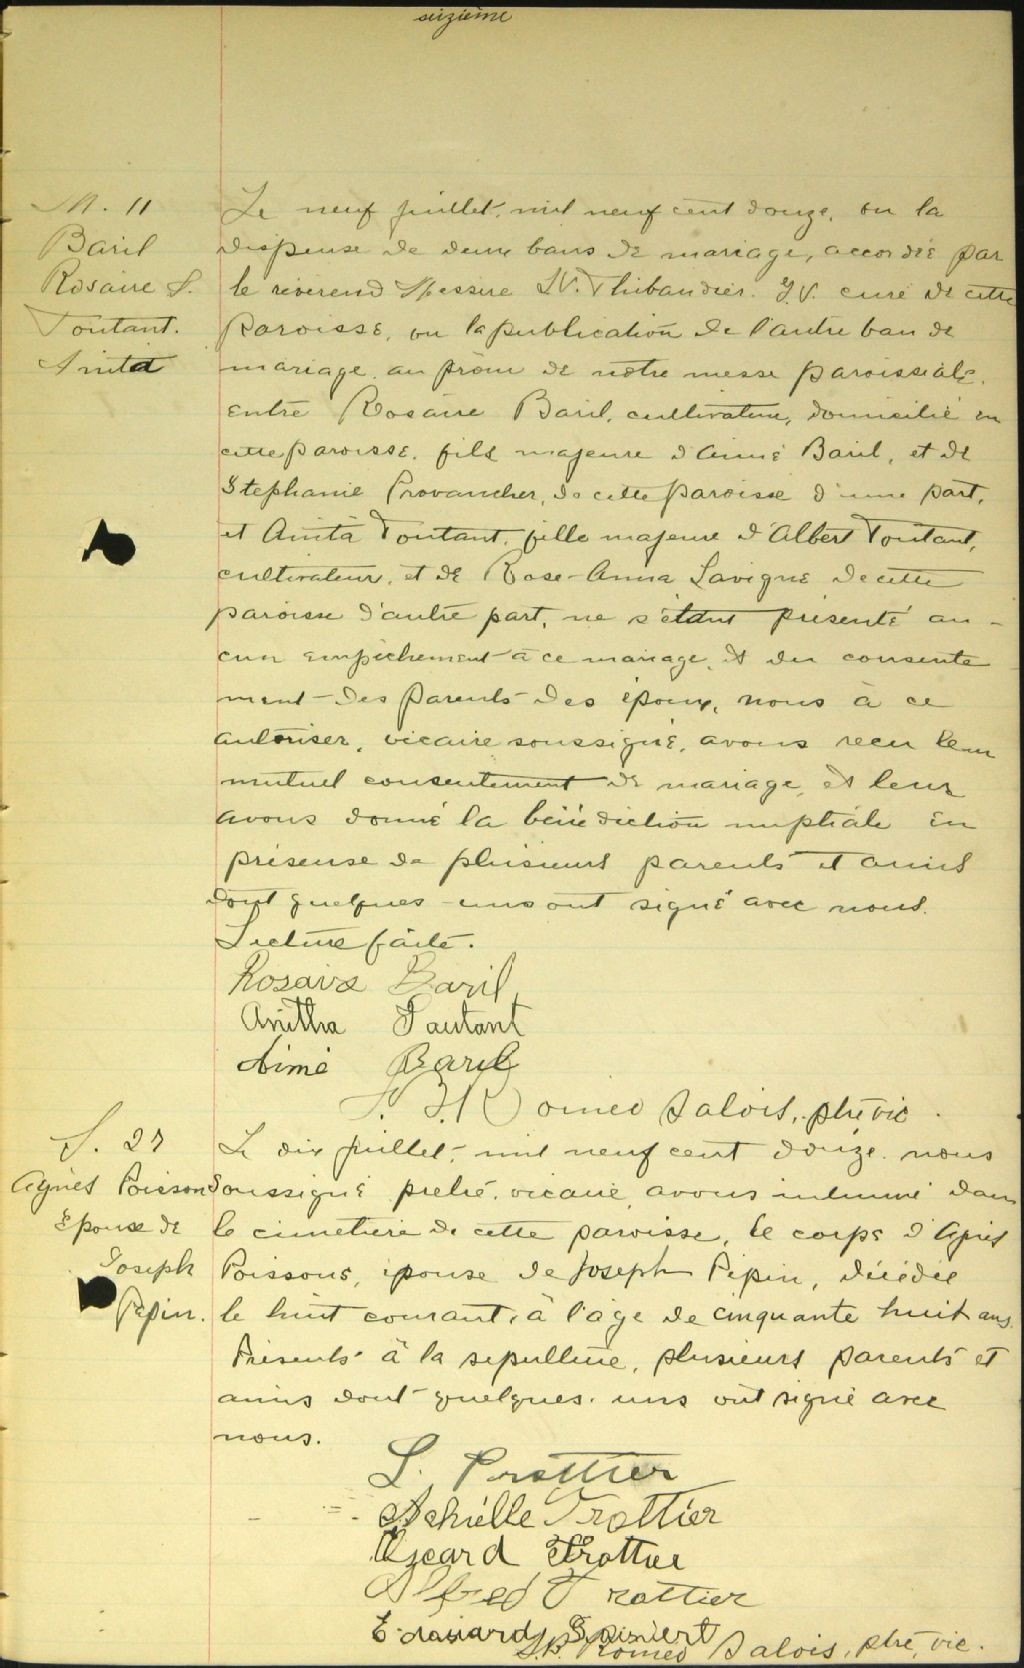 seizième
M. 11
Baril
Rosaire &
Toutant.
Anita
Le neuf juillet, mil neuf cent douze, vu la
dispense de deux bans de mariage, accordée par
le révérend Messire Thibaudier. J.V. curé de cette
Paroisse, vu la publication de l'autre ban de
mariage au prône de notre messe paroissiale,
entre Rosaire Baril, cultivateur, domicilié en
cette paroisse, fils majeure d'Aimé Baril, et de
Stephanie Provancher, de cette paroisse d'une part,
et Anita Toutant, fille majeure d'Albert Toutant,
cultivateur, et de Rose-Anna Lavigne de cette
paroisse d'autre part, ne s'étant présenté au-
cun empêchement à ce mariage, et du consente
ment des parents des époux, nous à ce
autoriser, vicaire soussigné, avons recu leur
mutuel consentement de mariage, et leur
avons donné la bénédiction nuptiale en
présense de plusieurs parents et amis
dont quelques-uns ont signé avec nous.
Lecture faite.
Rosaire Baril
Anitha Tautant
Aimé Baril
Romeo Salois, ptre vic.
S. 27
Agnès Poisson
Epouse de
Joseph
Pépin.
Le dix juillet, mil neuf cent douze. nous
soussigné prêtre, vicaire avons inhumé dans
le cimetière de cette paroisse, le corps d'Agnès
Poissons, épouse de Joseph Pépin, décédée
le huit courant, à l'âge de cinquante huit ans.
Présents à la sépulture, plusieurs parents et
amis dont quelques-uns ont signé avec
nous.
L. Trottier
Achielle Trottier
Oscard Trottier
Alfred Trottier
Edouard
Romeo Salois, ptre, vic.